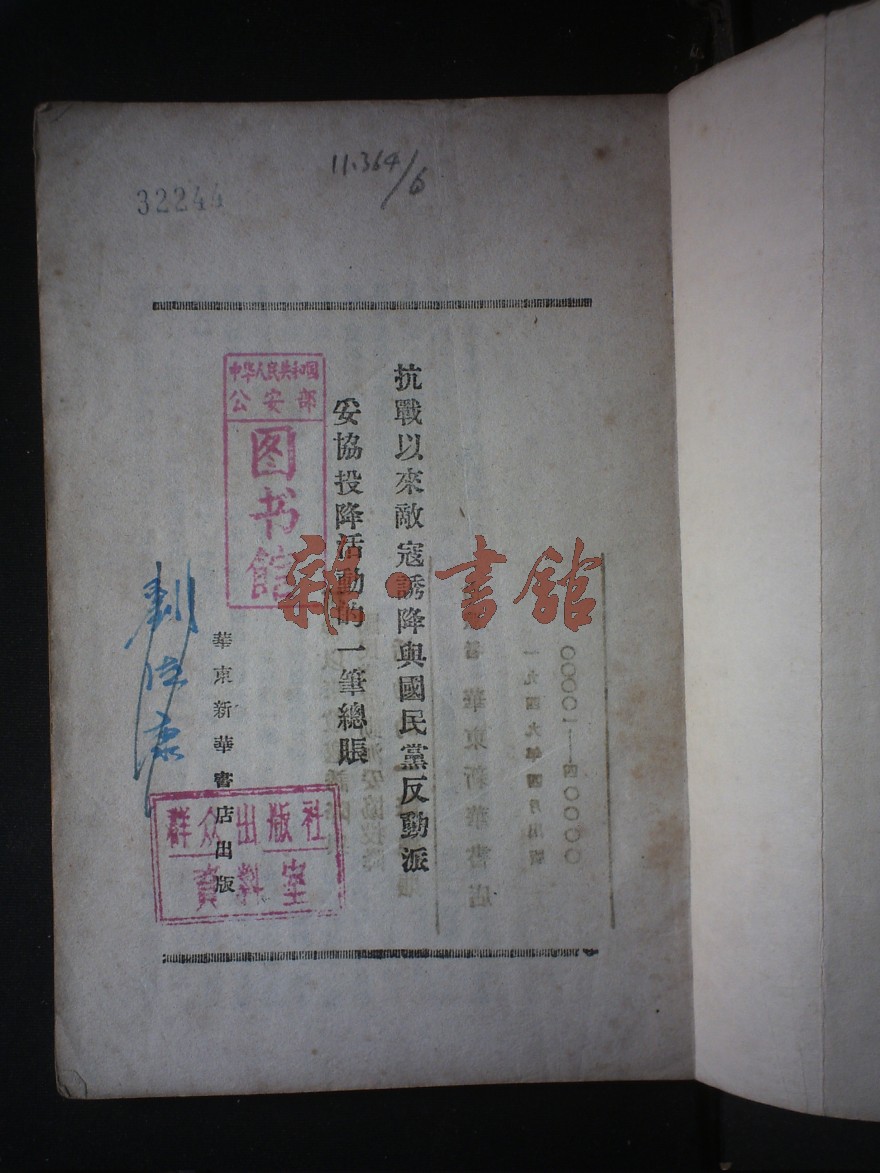 11.364/6
32244
抗戰以來敵寇誘降與國民黨反動派
妥協投降活動的一筆總賬
中华人民共和国
公安部
图书馆
雜·書館
華東新華書店出版
群众出版社
資料室
華東新華書店
一九四九年四月出版